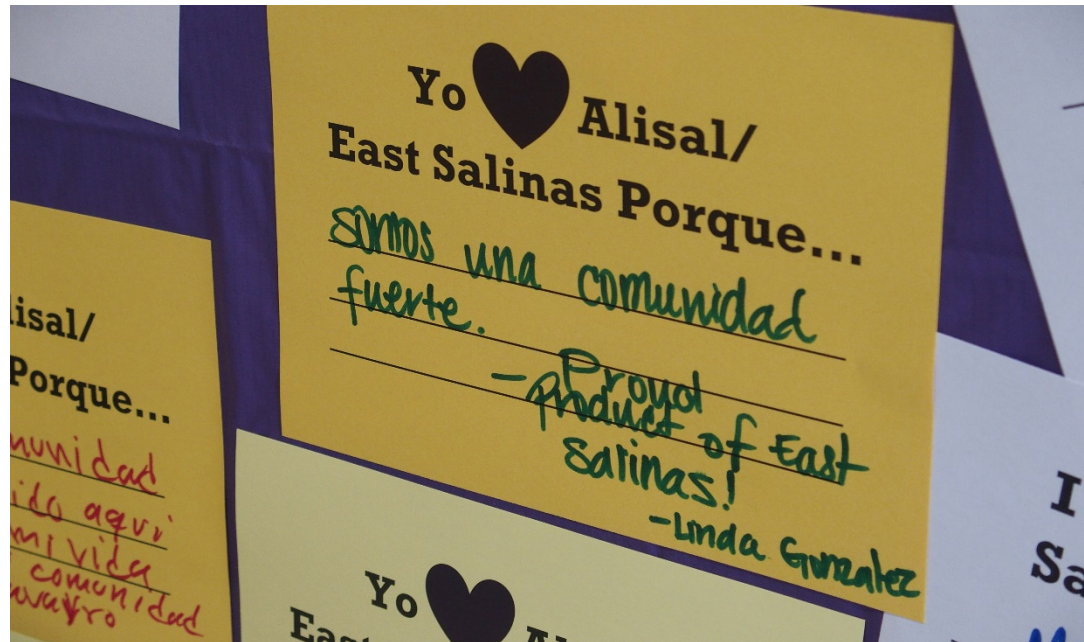 Yo ♥ Alisal/
East Salinas Porque...
somos una comunidad
fuerte.
- Proud
product of East
Salinas!
-Linda Gonzalez
lisal/
Porque...
munidad
ido aqui
mi vida
comunidad
Yo ♥
I
Sa